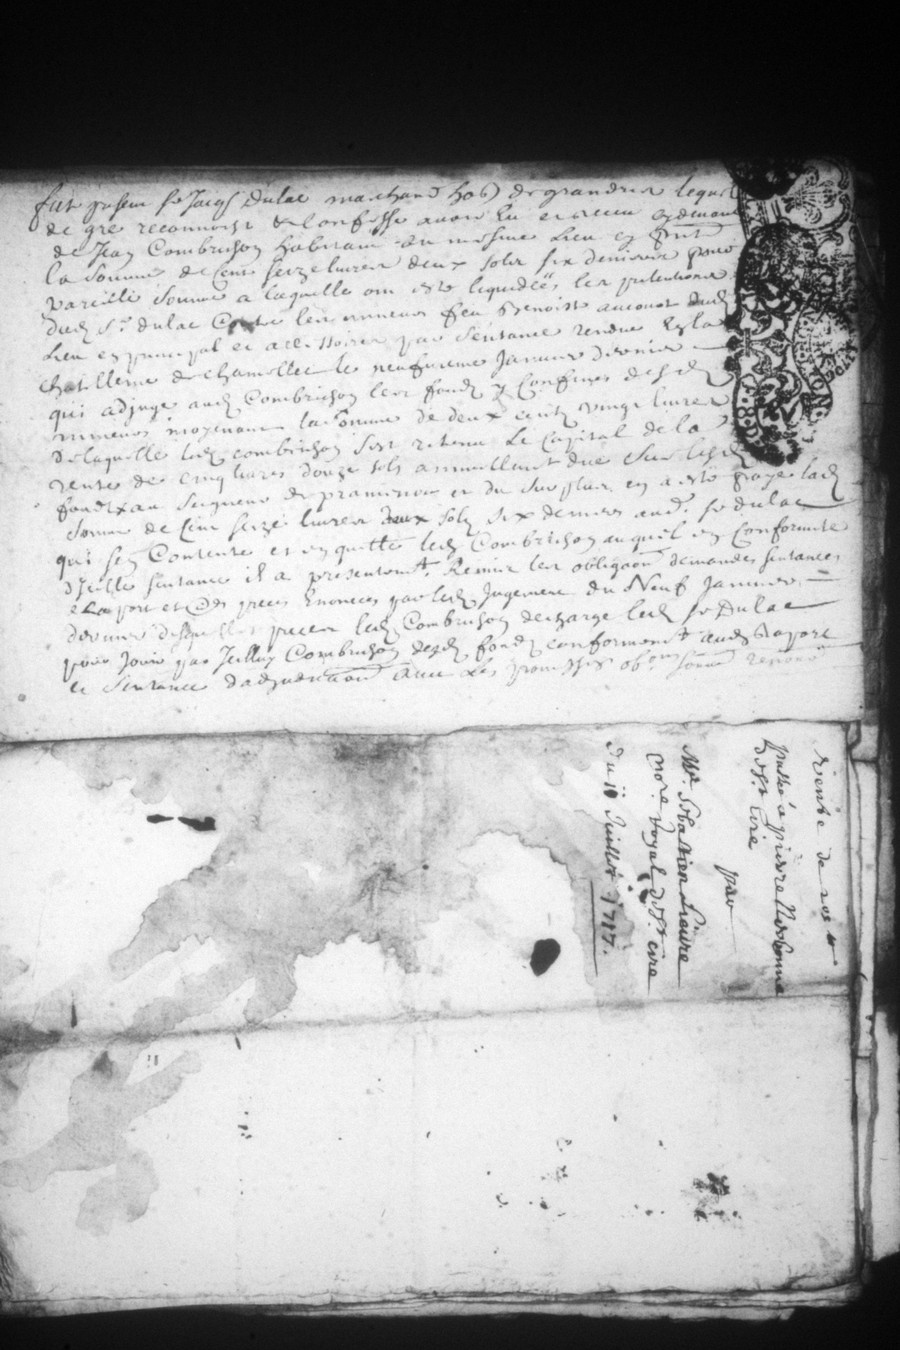 fut presem sr Jacqs Dulac marchand hab) de grandris lequel
de gré reconnoist & confesse avoir Eu et receu cydevant
de Jean Combrichon habitant du mesme Lieu cy pnt
la somme de cent seize livres deux sols six deniers pour
pareille somme a laquelle ont esté liquidéés les pretentions
dud sr dulac Contre les mineurs feu Benoist
Lieu en principal et acessoires par sentance rendue En la
chatellenie de chamellet le neufvieme Janvier dernier
qui adjuge aud Combrichon les fonds y Confines desd
mineurs moyenant la somme de deux cents vingt livres
de laquelle led combrichon sest retenu Le Capital de la
rente de cinq livres douze sols annuellemt due sur lesd
fonds au seigneur de pramenoux et du surplus en a esté payé lad
somme de cent seize livres deux sols six deniers aud sr dulac
qui sen Contente et en quitte led Combrichon auquel en conformité
dicelle sentance il a presentemt Remis les obligaon demandes sentances
raport et pieces Enoncées par led Jugement du Neuf Janvier
dernier desquelles pieces led Combrichon decharge led sr Dulac
pour Jouir par Icelluy Combrichon desd fonds conformemt aud Raport
et sentance dadjudication avec les promisses obon renon
Vente de
passé a pierre Narbonne
de st Cire
par
Me Sebastien Livre
nore Royal de st Cire
du 11 Juillet 1717.